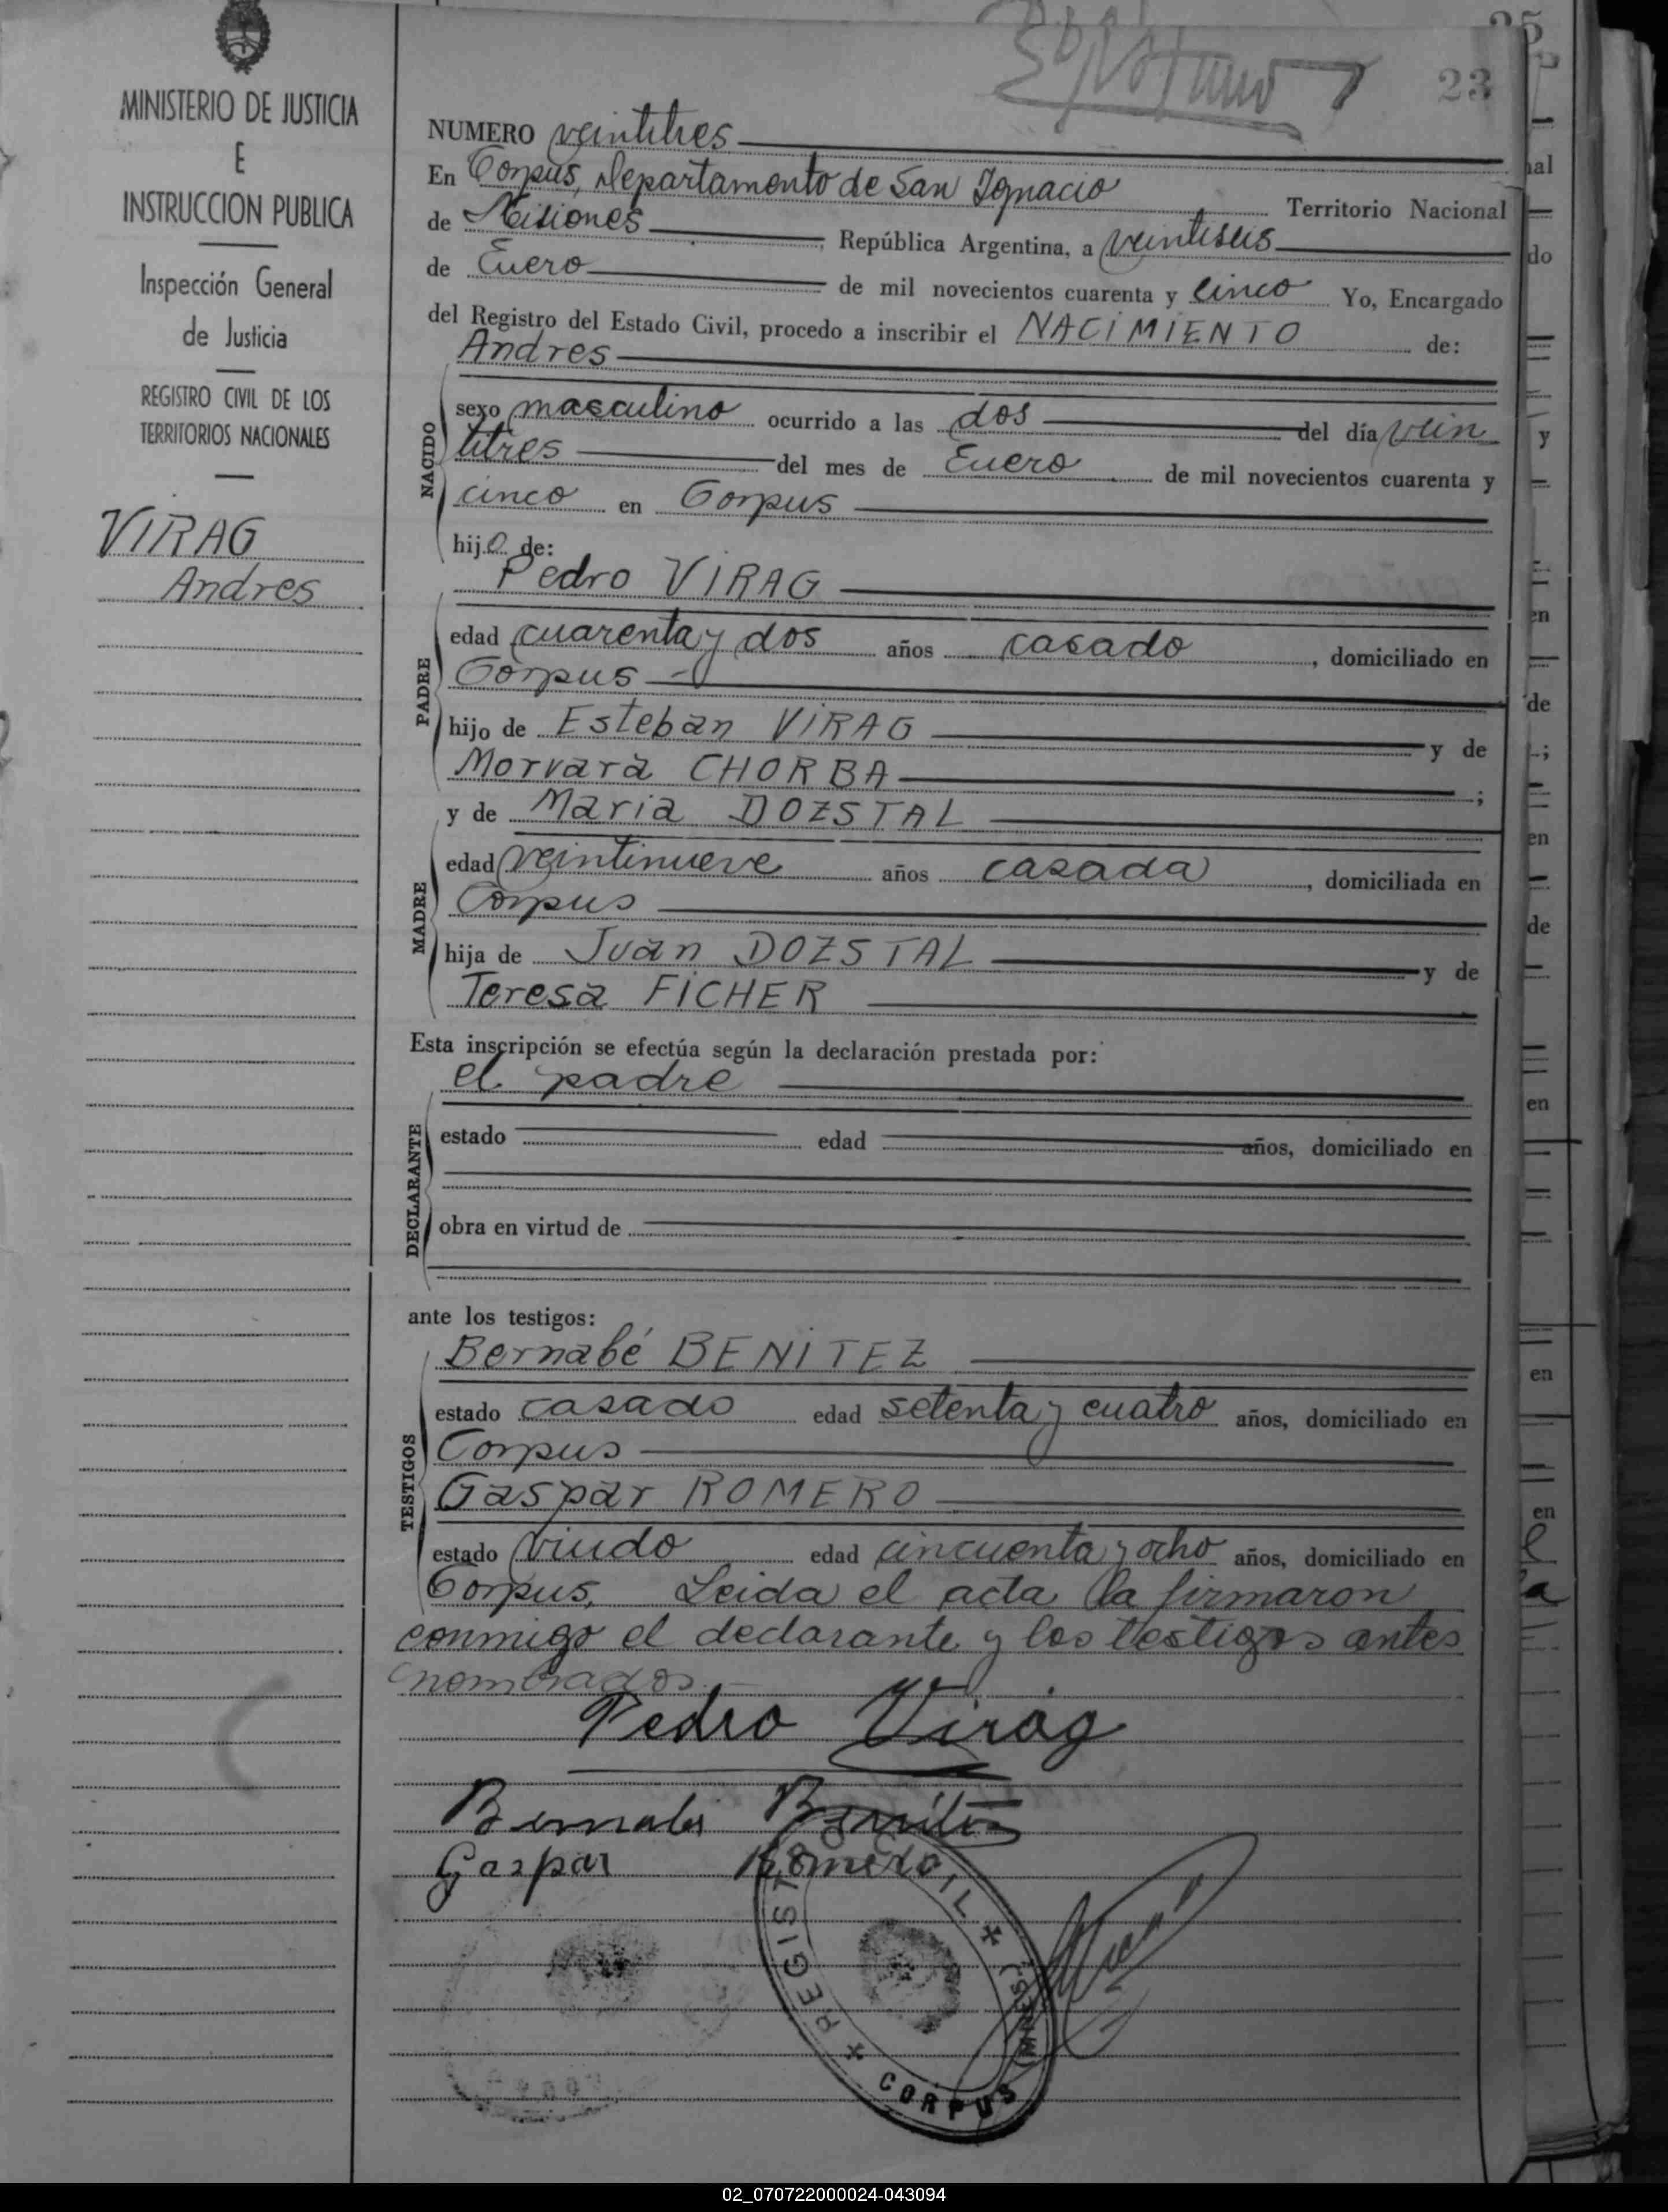 25
23
MINISTERIO DE JUSTICIA
E
INSTRUCCION PUBLICA
Inspección General
de Justicia
REGISTRO CIVIL DE LOS
TERRITORIOS NACIONALES
VIRAG
Andres
NUMERO veintitres
En Corpus, Departamento de San Ignacio Territorio Nacional
de Misiones, República Argentina, a veintiseis
de Enero de mil novecientos cuarenta y cinco Yo, Encargado
del Registro del Estado Civil, procedo a inscribir el NACIMIENTO de:
Andres
NACIDO
sexo masculino ocurrido a las dos del día vein
titres del mes de Enero de mil novecientos cuarenta y
cinco en Corpus
hijo de:
Pedro VIRAG
PADRE
edad cuarenta y dos años casado, domiciliado en
Corpus
hijo de Esteban VIRAG y de
Morvara CHORBA;
y de Maria DOZSTAL
MADRE
edad veintinueve años casada, domiciliada en
Corpus
hija de Juan DOZSTAL y de
Teresa FICHER
Esta inscripción se efectúa según la declaración prestada por:
el padre
DECLARANTE
estado edad años, domiciliado en
obra en virtud de
ante los testigos:
Bernabé BENITEZ
TESTIGOS
estado casado edad setenta y cuatro años, domiciliado en
Corpus
Gaspar ROMERO
estado viudo edad cincuenta y ocho años, domiciliado en
Corpus. Leida el acta la firmaron
conmigo el declarante y los testigos antes
nombrados.-
Pedro Virág
Bernabé Benitez
Gaspar Romero
REGISTRO CIVIL
CORPUS
02_070722000024-043094